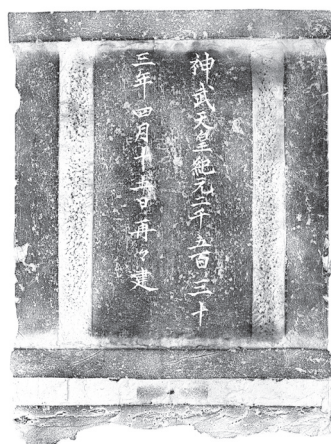 神武天皇紀元二千五百三十
三年四月十五日再々建